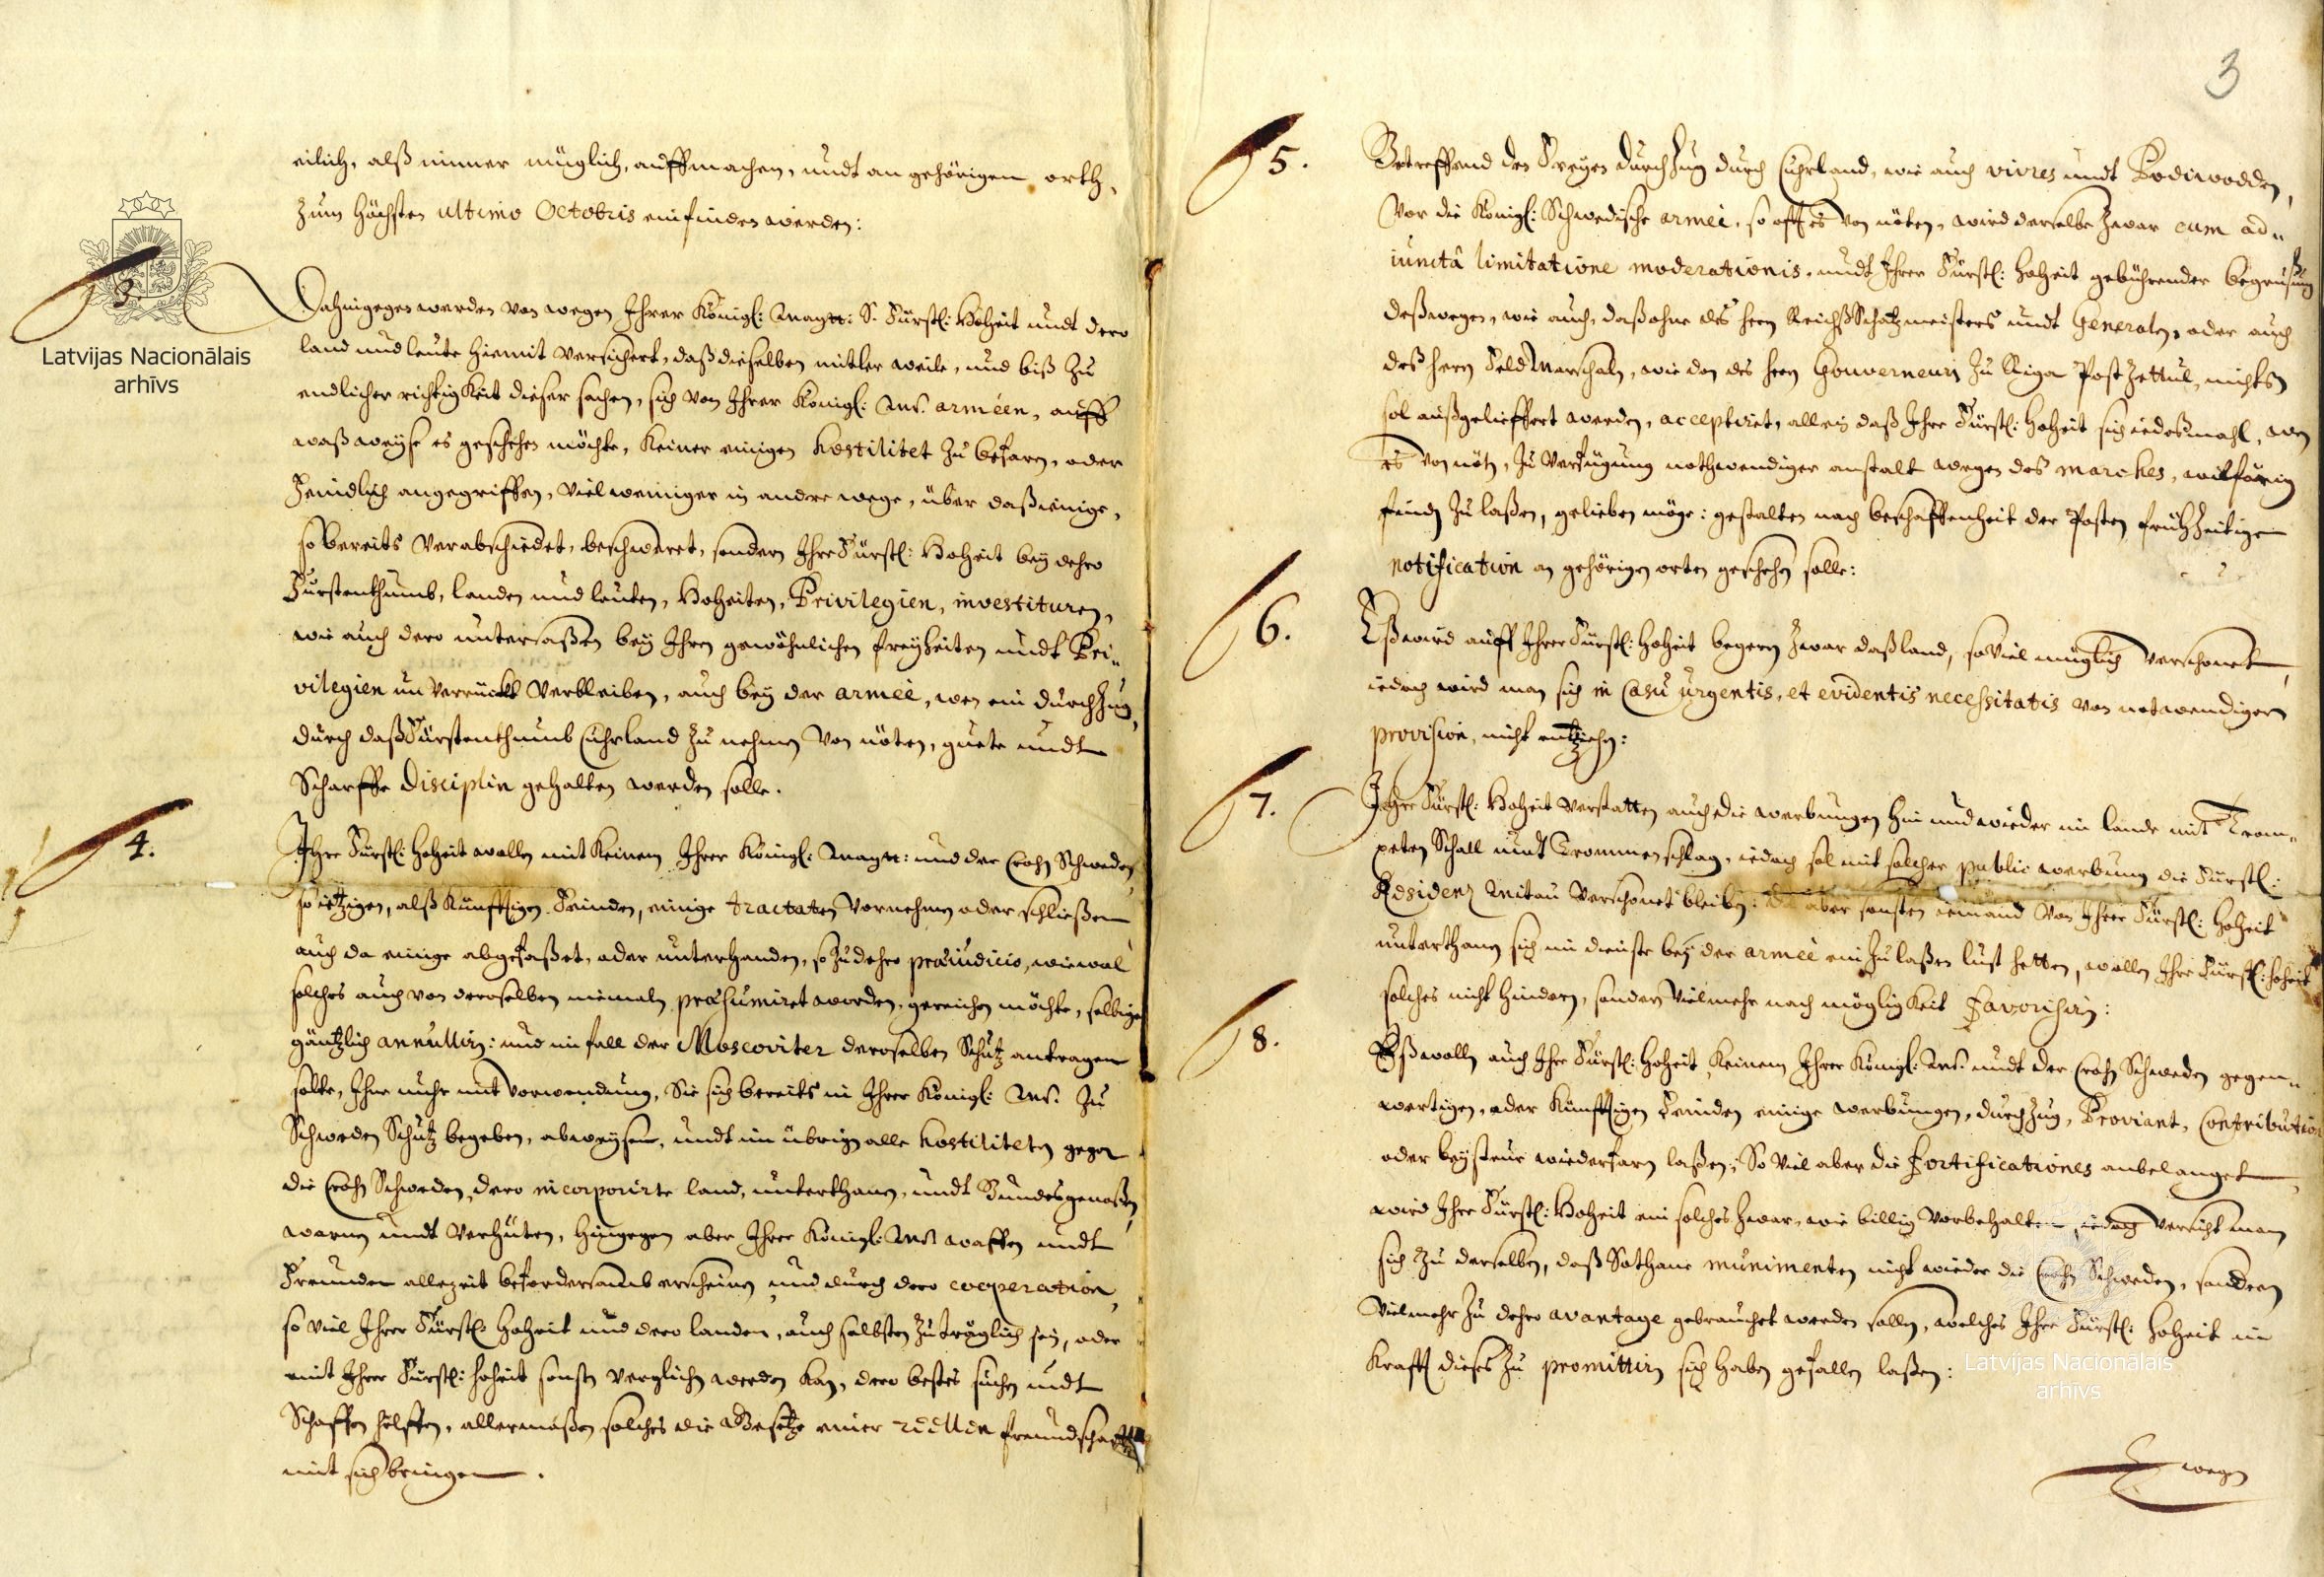 eilich, alß immer müglich, auffmachen, undt an gehörigen orth,
zum höchsten ultimo Octobris einfinden werden:
3.
Dahingegen werden von wegen Ihrer Königl: Maytt: S. Fürstl: Hoheit undt dero
land und leute hiemit versichert, daß dieselben mitler weile, und biß zu
endlicher richtigkeit dieser sachen, sich von Ihrer Königl: Ms. arméen, auff
waß weyse es geschehen möchte, keiner einigen hostilitet zu befaren, oder
feindlich angegriffen, viel weiniger in andre wege, über daß ienige,
so bereits verabschiedet, beschweret, sondern Ihre Fürstl: Hoheit bey dehro
Fürstenthumb, landen und leuten, Hoheiten, Privilegien, investituren,
wie auch dero untersaßen bey Ihren gewöhnlichen freyheiten undt Pri„
vilegien un verruckt verbleiben, auch bey der armeé, wen ein durchzug,
durch daß Fürstenthumb Cuhrland zu nehmen von nöten, guete undt
Scharffe Disciplin gehalten werden solle.
4.
Ihre Fürstl: Hoheit wollen mit keinem Ihrer Königl: Maytt: und der Crohn Schweden,
so ietzigen, alß künfftigen Feinden, einige tractaten vornehmen oder schließen
auch da einige abgefaßet, oder unterhanden, so zu dehro præiudicio, wiewol
solches auch von deroselben niemaln præsumiret worden, gereichen möchte, selbige
gäntzlich annullirn: und im fall der Moscoviter deroselben Schutz antragen
solte, Ihne nuhr mit vorwendung, Sie sich bereits in Ihrer Königl: Ms. zu
Schweden Schutz begeben, abweysen, undt im übrign alle hostiliteten gegen
die Crohn Schweden, dero incorporirte land, unterthanen, undt Bundesgenoßen,
warnen undt verhüten, hingegen aber Ihrer Königl: Ms waffen undt
Freunden allezeit befordersamb erscheinen, und durch dero cooperation,
so viel Ihrer Fürstl: Hoheit und dero landen, auch selbsten zuträglich sein, oder
mit Ihrer Fürstl: Hoheit sonsten verglichen werden kan, dero bestes suchen undt
Schaffen helffen, allermaßen solches die Gesetze einer reellen freundschafft
mit sich bringen.
3
5.
Betreffend den Freyen durchzug durch Cuhrland, wie auch vivres undt Podwodden,
vor die Königl: Schwedische armeé, so offt es von nöten, wird derselbe zwar cum ad„
iunctâ limitatione moderationis, undt Ihrer Fürstl: Hoheit gebührender begrüßung
deßwegen, wie auch, daß ohne des hern Reichß Schatzmeisters undt Generalen, oder auch
deß hern Feld Marschaln, wie den des hern Gouverneurn zu Riga Post zettul, nichts
sol außgelieffert werden, acceptiret, allein daß Ihre Fürstl: Hoheit sich iedesmahl, wen
es von nöten, zu verfügung nothwendiger anstalt wegen des marches, wilfärig
finden zu laßen, gelieben möge: gestalten nach beschaffenheit der Posten frühzeitige
notification an gehörigen orten geschehen solle:
6.
Eß wird auff Ihrer Fürstl: Hoheit begern zwar daß land, so viel müglich verschonet,
iedoch wird man sich in Casu urgentis, et evidentis necessitatis von notwendigen
provision, nicht entziehen:
7.
Ihre Fürstl: Hoheit verstatten auch die werbungen hin und wieder im lande mit Trom„
peten Schall undt Trommenschlag, iedoch sol mit solcher public werbung die Fürstl:
Residenz Mitau verschonet bleiben: da aber sonsten iemand von Ihrer Fürstl: Hoheit
unterthanen sich im dienste bey der armeé ein zu laßen lust hetten, wollen Ihre Fürstl: Hoheit
solches nicht hindern, sondern vielmehr nach mögligkeit favorisirn:
8.
Eß wolln auch Ihre Fürstl: Hoheit, keinem Ihrer Königl: Ms. undt der Crohn Schweden gegen„
wertigen, oder künfftigen Feinden einige werbungen, durchzug, Proviant, Contribution
oder beysteur wiederfaren laßen; So viel aber die fortificationes anbelanget,
wird Ihre Fürstl: Hoheit ein solches zwar, wie billig vorbehalten, iedoch versicht man
sich zu derselben, daß Sothane munimenten nicht wieder die Crohn Schweden, sondern
vielmehr zu dehro avantage gebrauchet werden sollen, welches Ihre Fürstl: Hoheit in
Krafft dieses zu promittirn sich haben gefallen laßen:
wegen
Latvijas Nacionālais
arhīvs
Latvijas Nacionālais
arhīvs